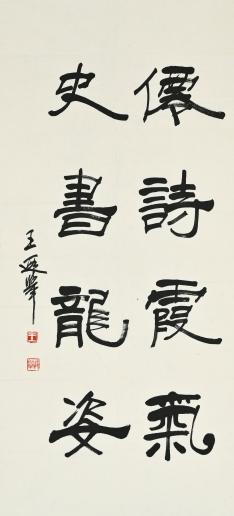 僊詩霞氣
史書龍姿
王遐舉